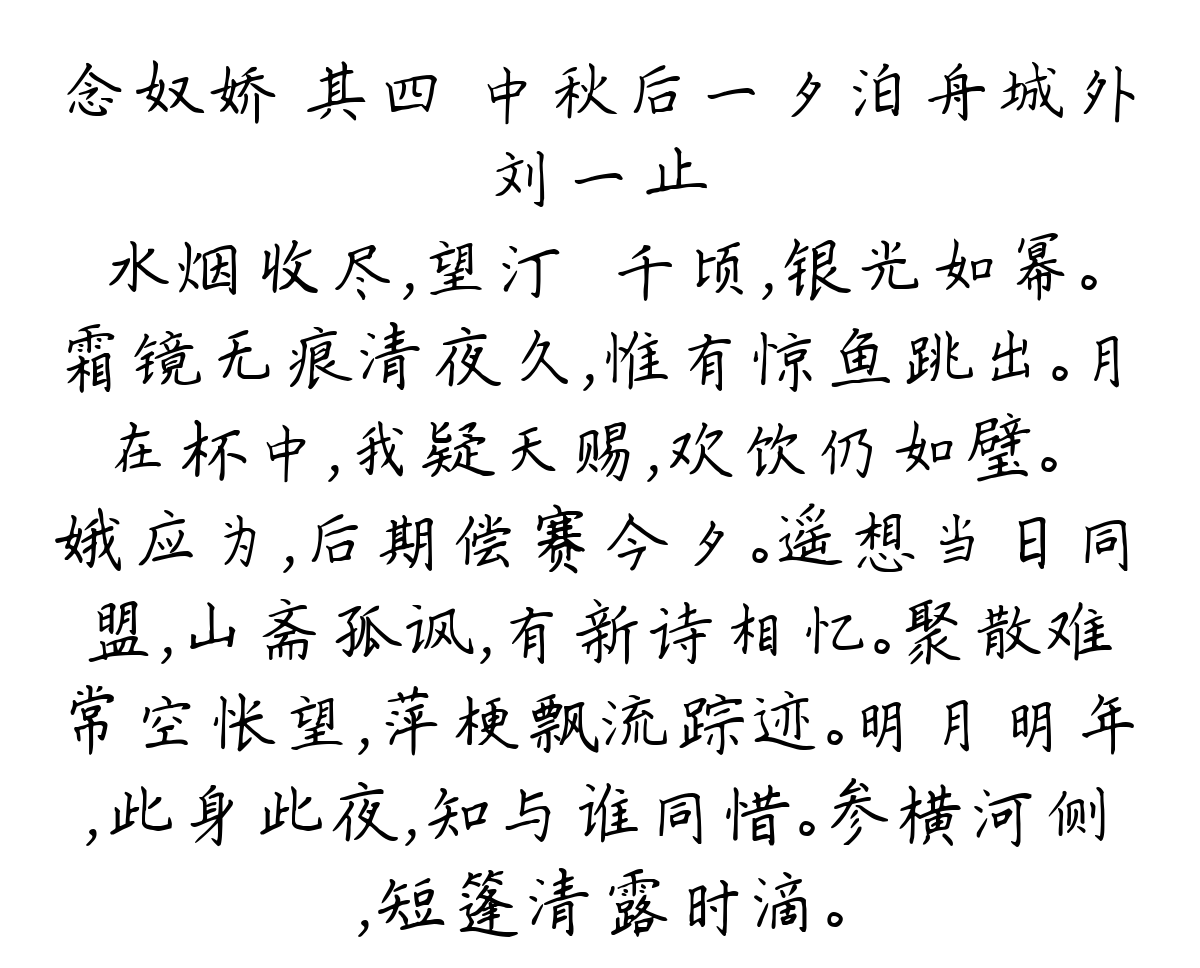 念奴娇 其四 中秋后一夕泊舟城外
刘一止
水烟收尽,望汀 千顷,银光如幂。
霜镜无痕清夜久,惟有惊鱼跳出。月
在杯中,我疑天赐,欢饮仍如璧。
娥应为,后期偿赛今夕。遥想当日同
盟,山斋孤讽,有新诗相忆。聚散难
常空怅望,萍梗飘流踪迹。明月明年
,此身此夜,知与谁同惜。参横河侧
,短篷清露时滴。